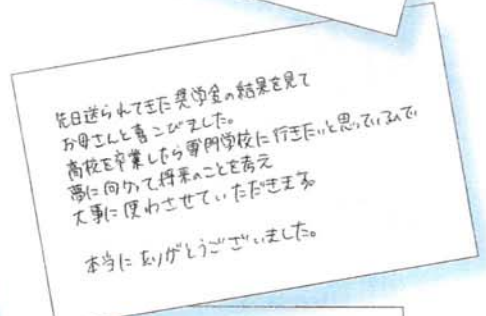 先日送られてきた奨学金の結果を見て
お母さんと喜こびました。
高校を卒業したら専門学校に行きたいと思っているので
夢に向かって将来のことを考え
大事に使わさせていただきます。
本当にありがとうございました。